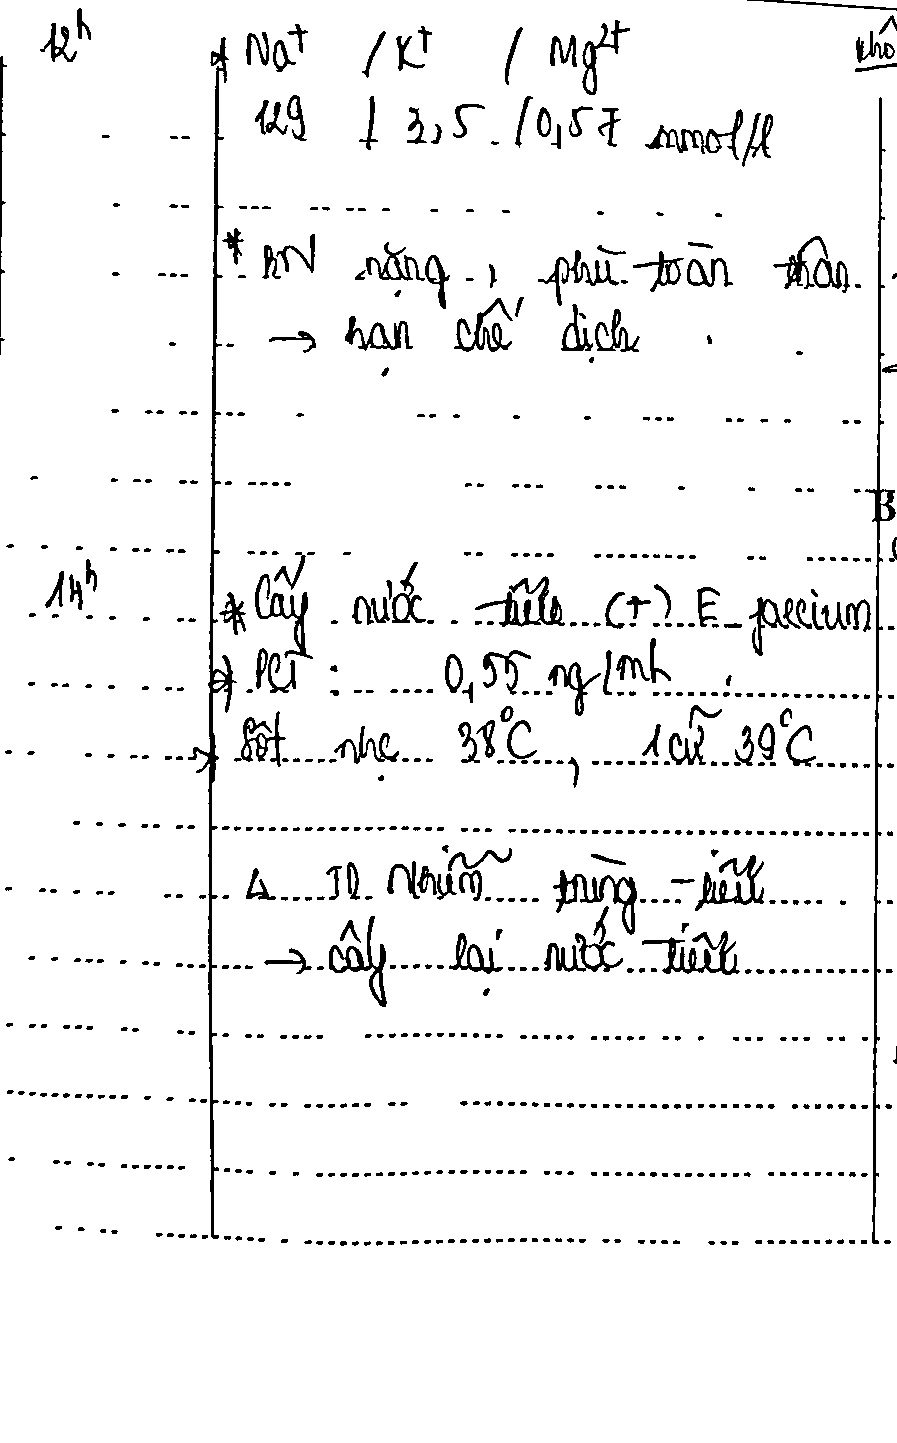 12h * Na⁺ / K⁺ / Mg²⁺ khô
129 / 3,5 / 0,57 mmol/l
* BN nặng, phù toàn thân
→ hạn chế dịch
B
14h * Cấy nước tiểu (+) E faecium
* PCT : 0,55 ng/mL
→ Sốt nhẹ 38°C, 1 cữ 39°C
Δ TD Nhiễm trùng tiểu
→ cấy lại nước tiểu